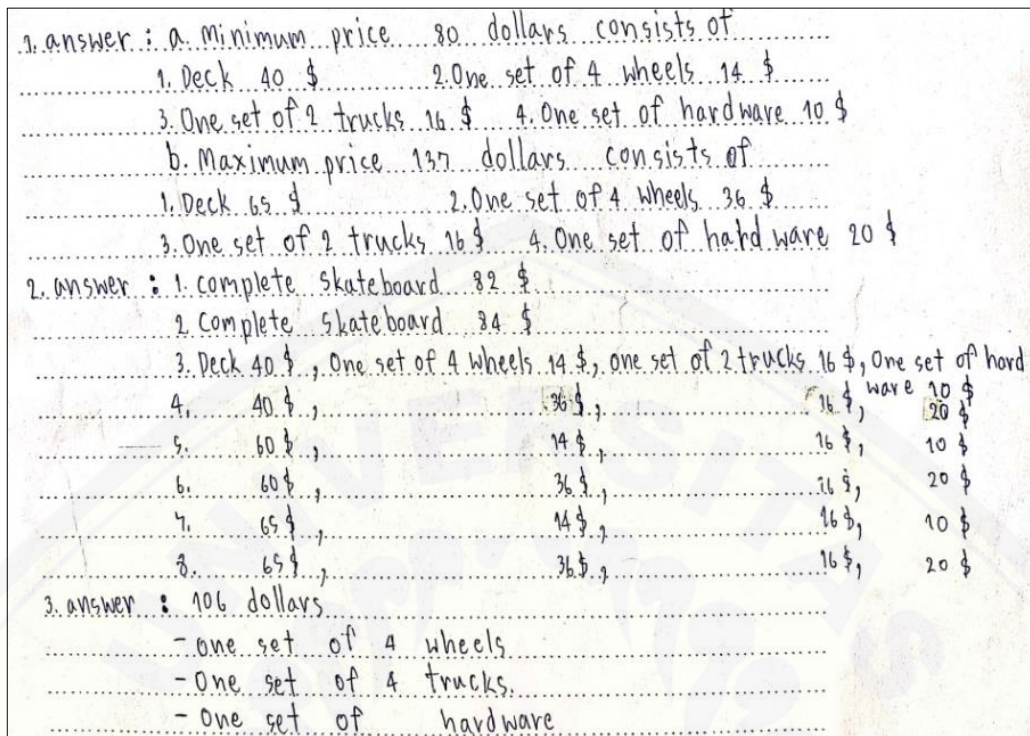 1. answer : a. Minimum price 80 dollars consists of
1. Deck 40 $ 2. One set of 4 wheels 14 $
3. One set of 2 trucks 16 $ 4. One set of hardware 10 $
b. Maximum price 137 dollars consists of
1. Deck 65 $ 2. One set of 4 wheels 36 $
3. One set of 2 trucks 16 $ 4. One set of hardware 20 $
2. answer : 1. complete skateboard 82 $
2 Complete skateboard 84 $
3. Deck 40 $, One set of 4 wheels 14 $, one set of 2 trucks 16 $, One set of hard
ware 10 $
4. 40 $, 36 $, 16 $, 20 $
5. 60 $, 14 $, 16 $, 10 $
6. 60 $, 36 $, 16 $, 20 $
7. 65 $, 14 $, 16 $, 10 $
8. 65 $, 36 $, 16 $, 20 $
3. answer : 106 dollars
- one set of 4 wheels
- One set of 4 trucks.
- One set of hardware
UNIVERSITAS